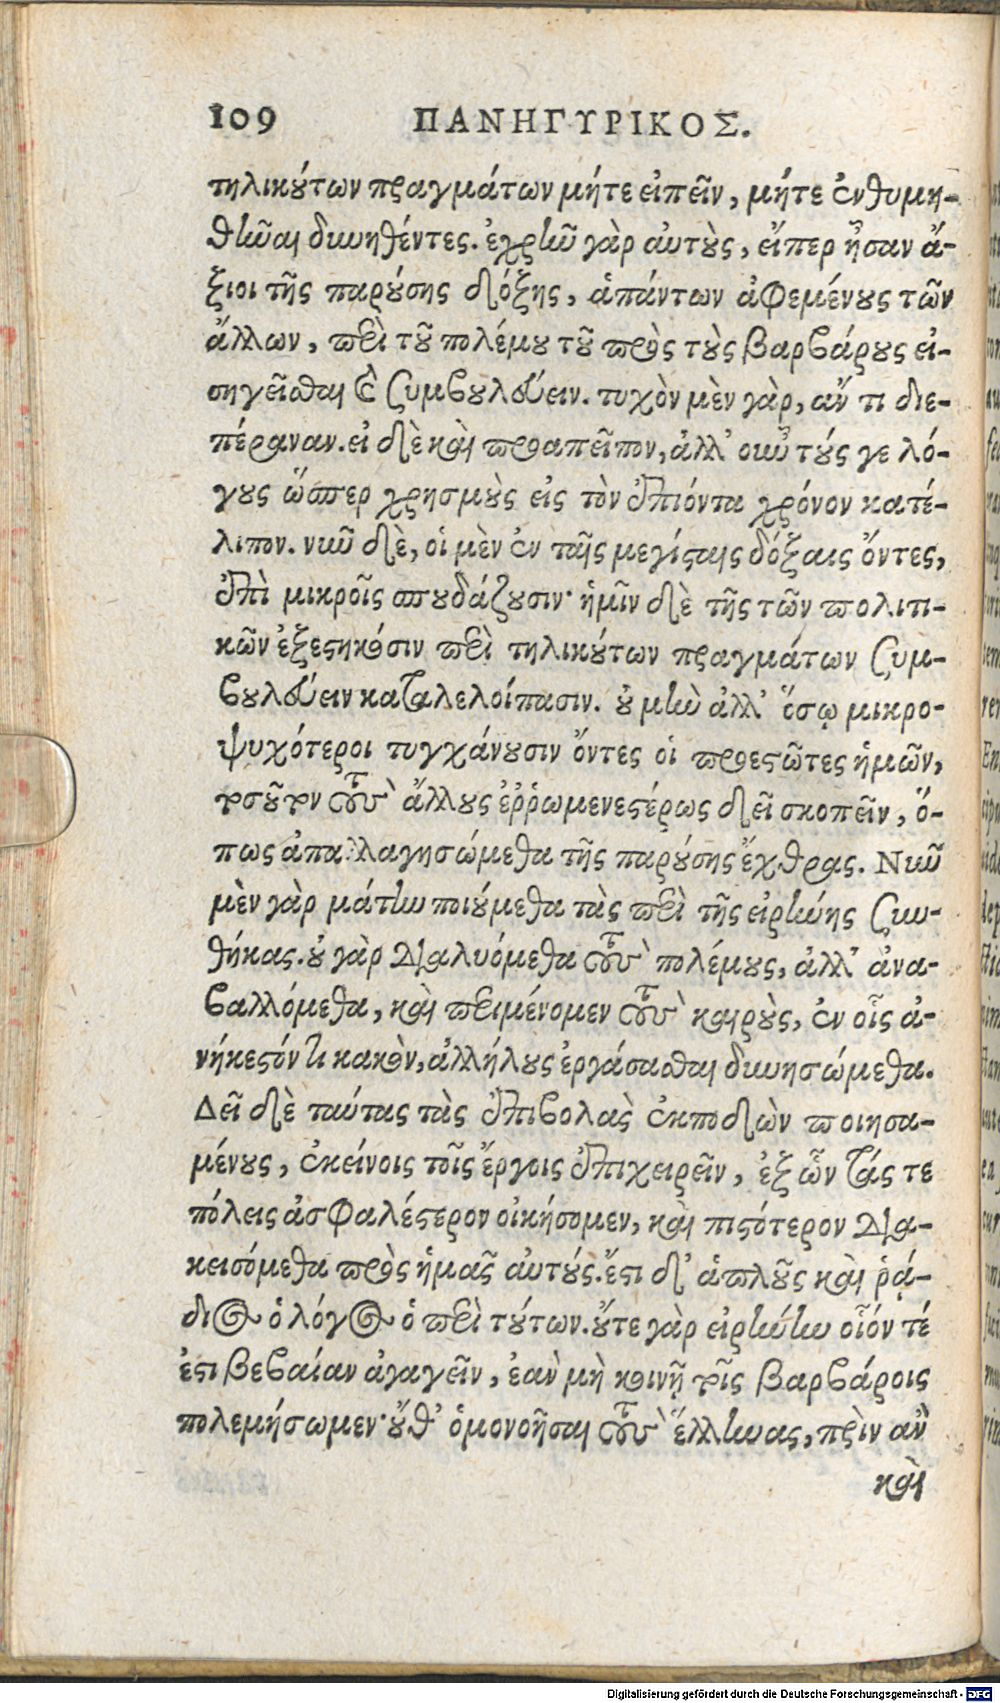 109 ΠΑΝΗΓΥΡΙΚΟΣ.
τηλικȣ́των πραγμάτων μήτε εἰπεῖν, μήτε ἐνθυμη-
θῆναι δυνηθέντες. ἐχρῆν γὰρ αὐτȣ̀ς, εἴπερ ἦσαν ἄ-
ξιοι τῆς παρȣ́σης δόξης, ἁπάντων ἀφεμένȣς τῶν
ἄλλων, περὶ τȣ͂ πολέμȣ τȣ͂ πρὸς τȣ̀ς βαρβάρȣς εἰ-
σηγεῖσθαι καὶ συμβȣλεύειν. τυχὸν μὲν γὰρ, ἄν τι διε-
πέραναν. εἰ δὲ καὶ προαπεῖπον, ἀλλ' οὖν τȣ́ς γε λό-
γȣς ὥσπερ χρησμȣ̀ς εἰς τὸν ἐπιόντα χρόνον κατέ-
λιπον. νῦν δὲ, οἱ μὲν ἐν ταῖς μεγίσταις δόξαις ὄντες,
ἐπὶ μικροῖς σπȣδάζȣσιν· ἡμῖν δὲ τῆς τῶν πολιτι-
κῶν ἐξεστηκόσιν περὶ τηλικȣ́των πραγμάτων συμ-
βȣλεύειν καταλελοίπασιν. ȣ̓ μὴν ἀλλ' ὅσῳ μικρο-
ψυχότεροι τυγχάνȣσιν ὄντες οἱ προεστῶτες ἡμῶν,
τοσȣ͂τον τȣ̀ς ἄλλȣς ἐῤῥωμενεστέρως δεῖ σκοπεῖν, ὅ-
πως ἀπαλλαγησώμεθα τῆς παρȣ́σης ἔχθρας. Νῦν
μὲν γὰρ μάτην ποιȣ́μεθα τὰς περὶ τῆς εἰρήνης συν-
θήκας. ȣ̓ γὰρ διαλυόμεθα τȣ̀ς πολέμȣς, ἀλλ' ἀνα-
βαλλόμεθα, καὶ περιμένομεν τȣ̀ς καιρȣ̀ς, ἐν οἷς ἀ-
νήκεστόν τι κακὸν, ἀλλήλȣς ἐργάσασθαι δυνησώμεθα.
Δεῖ δὲ ταύτας τὰς ἐπιβολὰς ἐκποδὼν ποιησα-
μένȣς, ἐκείνοις τοῖς ἔργοις ἐπιχειρεῖν, ἐξ ὧν τάς τε
πόλεις ἀσφαλέστερον οἰκήσομεν, καὶ πιστότερον δια-
κεισόμεθα πρὸς ἡμᾶς αὐτȣ́ς. ἔστι δ' ἁπλȣ͂ς καὶ ῥᾴ-
διος ὁ λόγος ὁ περὶ τȣ́των. ȣ̓́τε γὰρ εἰρήνην οἷόν τέ
ἐστι βεβαίαν ἀγαγεῖν, ἐὰν μὴ κοινῇ τοῖς βαρβάροις
πολεμήσωμεν· ȣ̓́θ' ὁμονοῆσαι τȣ̀ς ἕλληνας, πρὶν ἂν
καὶ
Digitalisierung gefördert durch die Deutsche Forschungsgemeinschaft - DFG